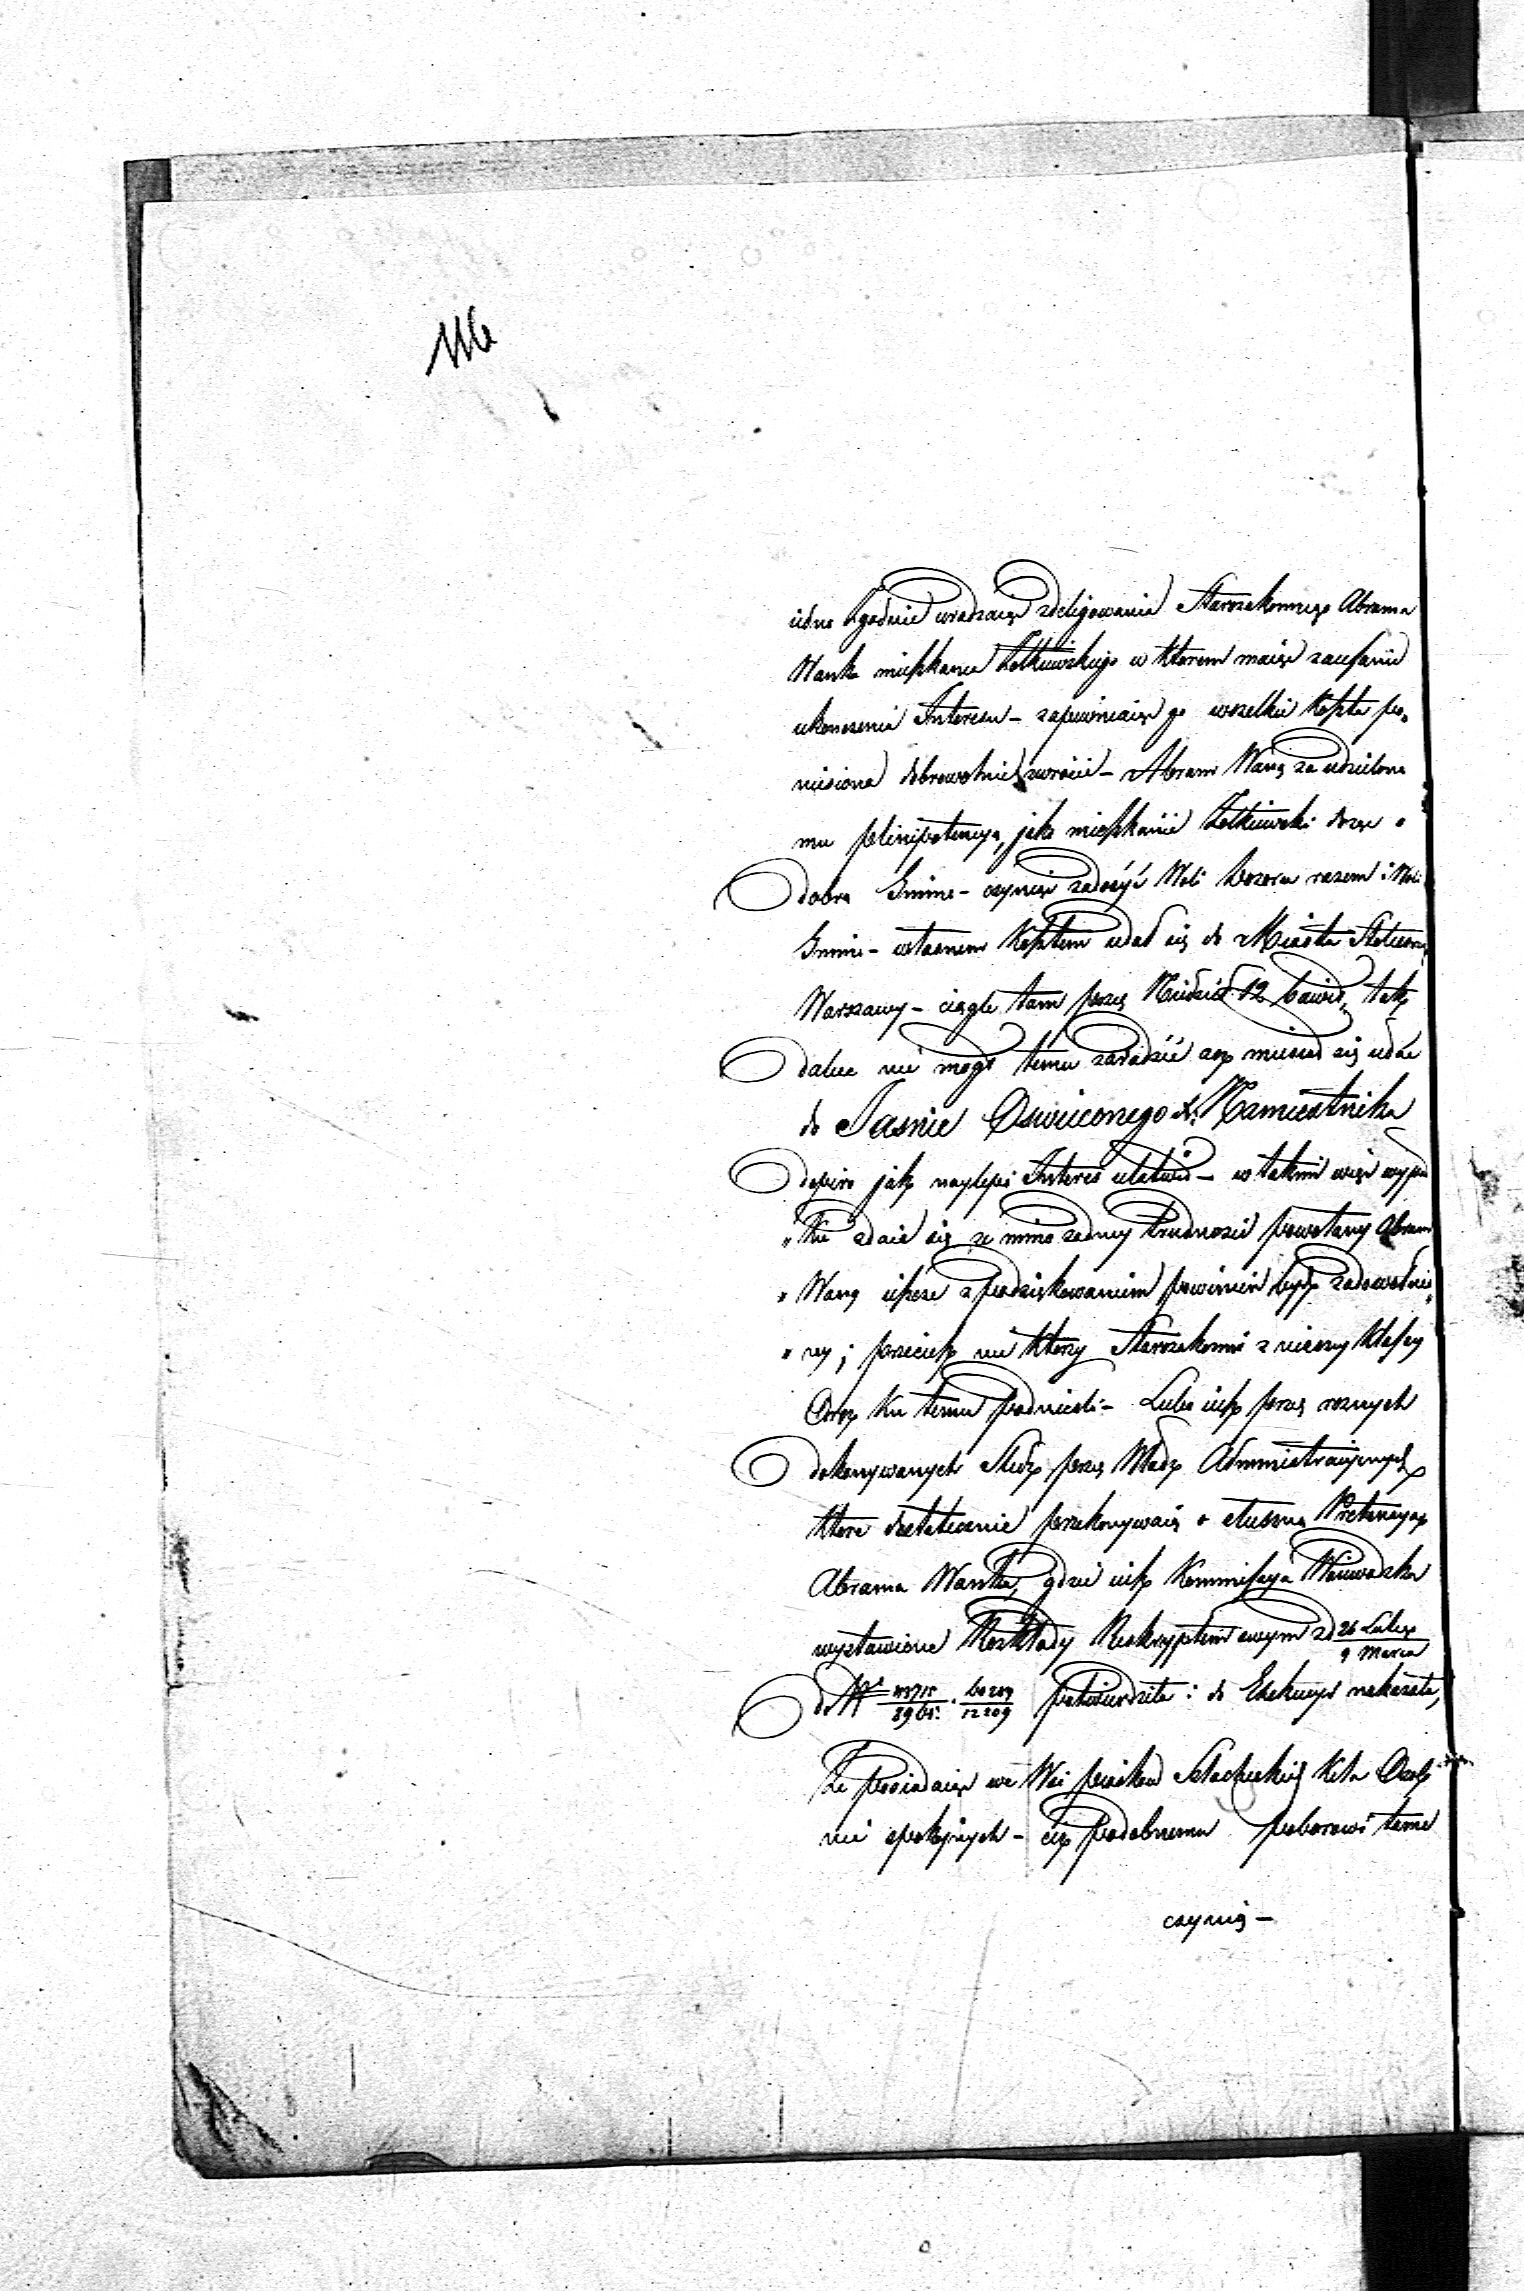 116
iedno zgodnie uradzaiąc zdeligowanie Starozakonnego Abrama
Wanka mieszkańca Zołkiewskiego w którem maiąc zaufanie
ukonczenia Interesu - zapewniaiąc go wszelkie koszta po„
niesione dobrowolnie zwrocić - Abram Wang za udzieloną
mu plenipotencyą, jako mieszkaniec Zołkiewski
dobro Gminne - czyniąc zadosyć Woli Dozoru razem i Woli
Gminy - własnem kosztem udał się do Miasta Stołeczn:
Warszawy - ciągle tam przez Niedziel 12 bawił, lecz
daley nie mogł temu zaradzić aż musiał się udać
do Jasnie Oswieconego X: Namiestnika
dopiro jak naylepi Interes ułatwił - w takim więc wypad
„ku zdaie się ze mimo zadney trudności powołany Abram
„Wang ieszcze z podziękowaniem powinien bydz zadowolnio„
„ny; przeciesz nie ktorzy Starozakonni z nizszy klassy
Oraz ku temu podnieśli - Lubo iusz przez roznych
dokonywanych przez Władz Administracyinych
ktore dostatecznie przekonywaią o słuszną Pretensyą
Abrama Wanka, gdzie iusz Kommissya Woiewodzka
wystawione Rozkłady Reskryptem swym z d 26 Lutego / 9 Marca
do N 60209 / 12209 potwierdziła i do Exekucyi nakazała,
Ze posiadaiąc we Wsi Szlacheckiej kilka Osob
nie spokojnych - podobnemu poborowi tamę
czynią -